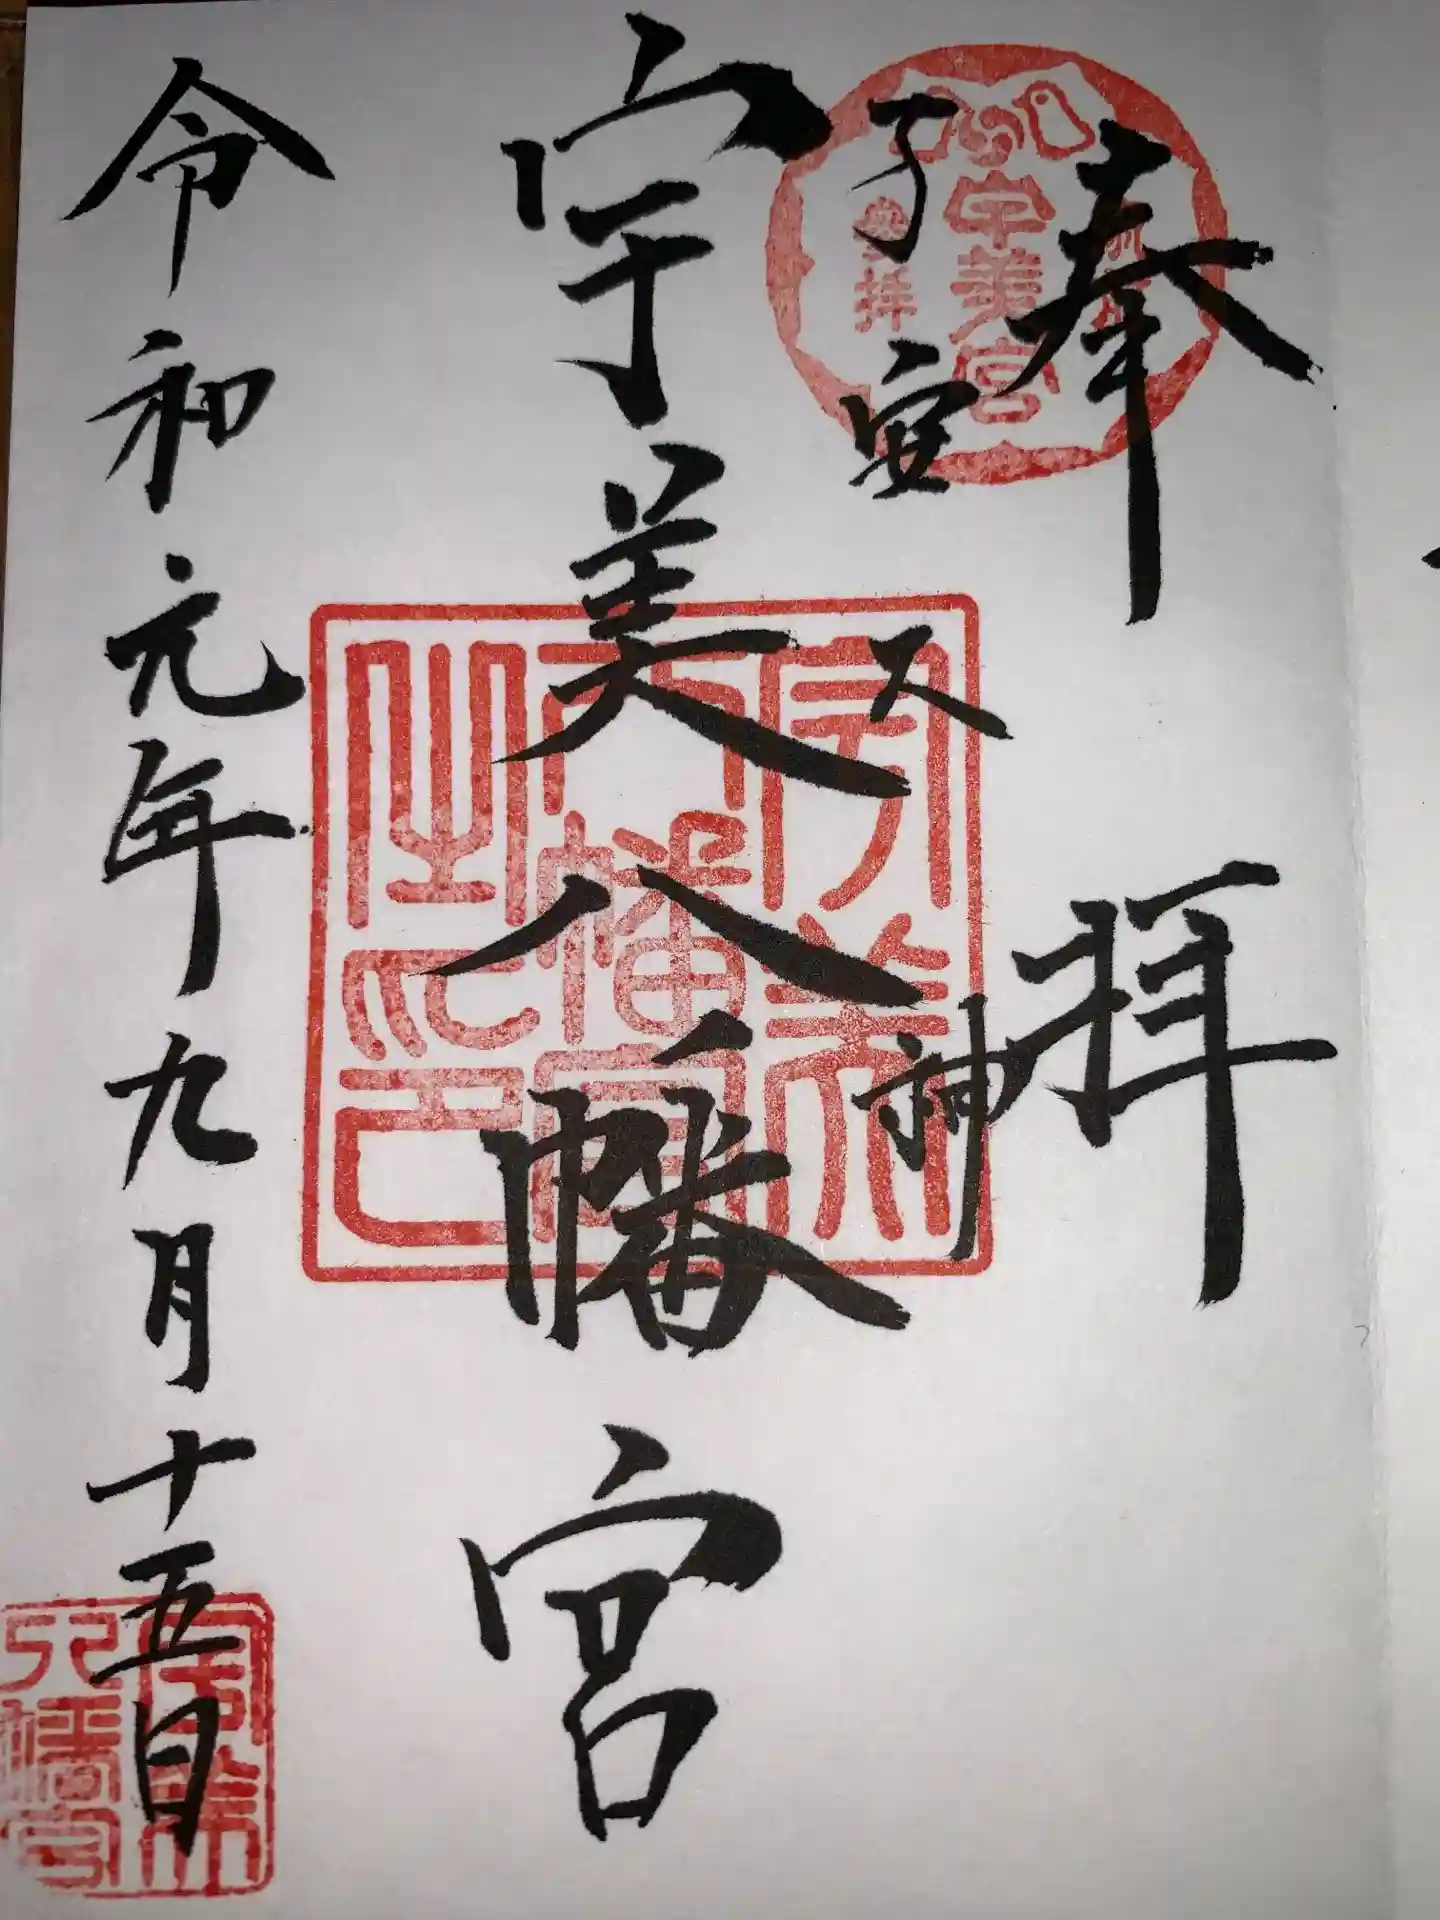 奉拝
子安大神
宇美八幡宮
令和元年九月十五日
宇美宮
参拝
宇美
八幡宮
之印
宇美
八幡宮